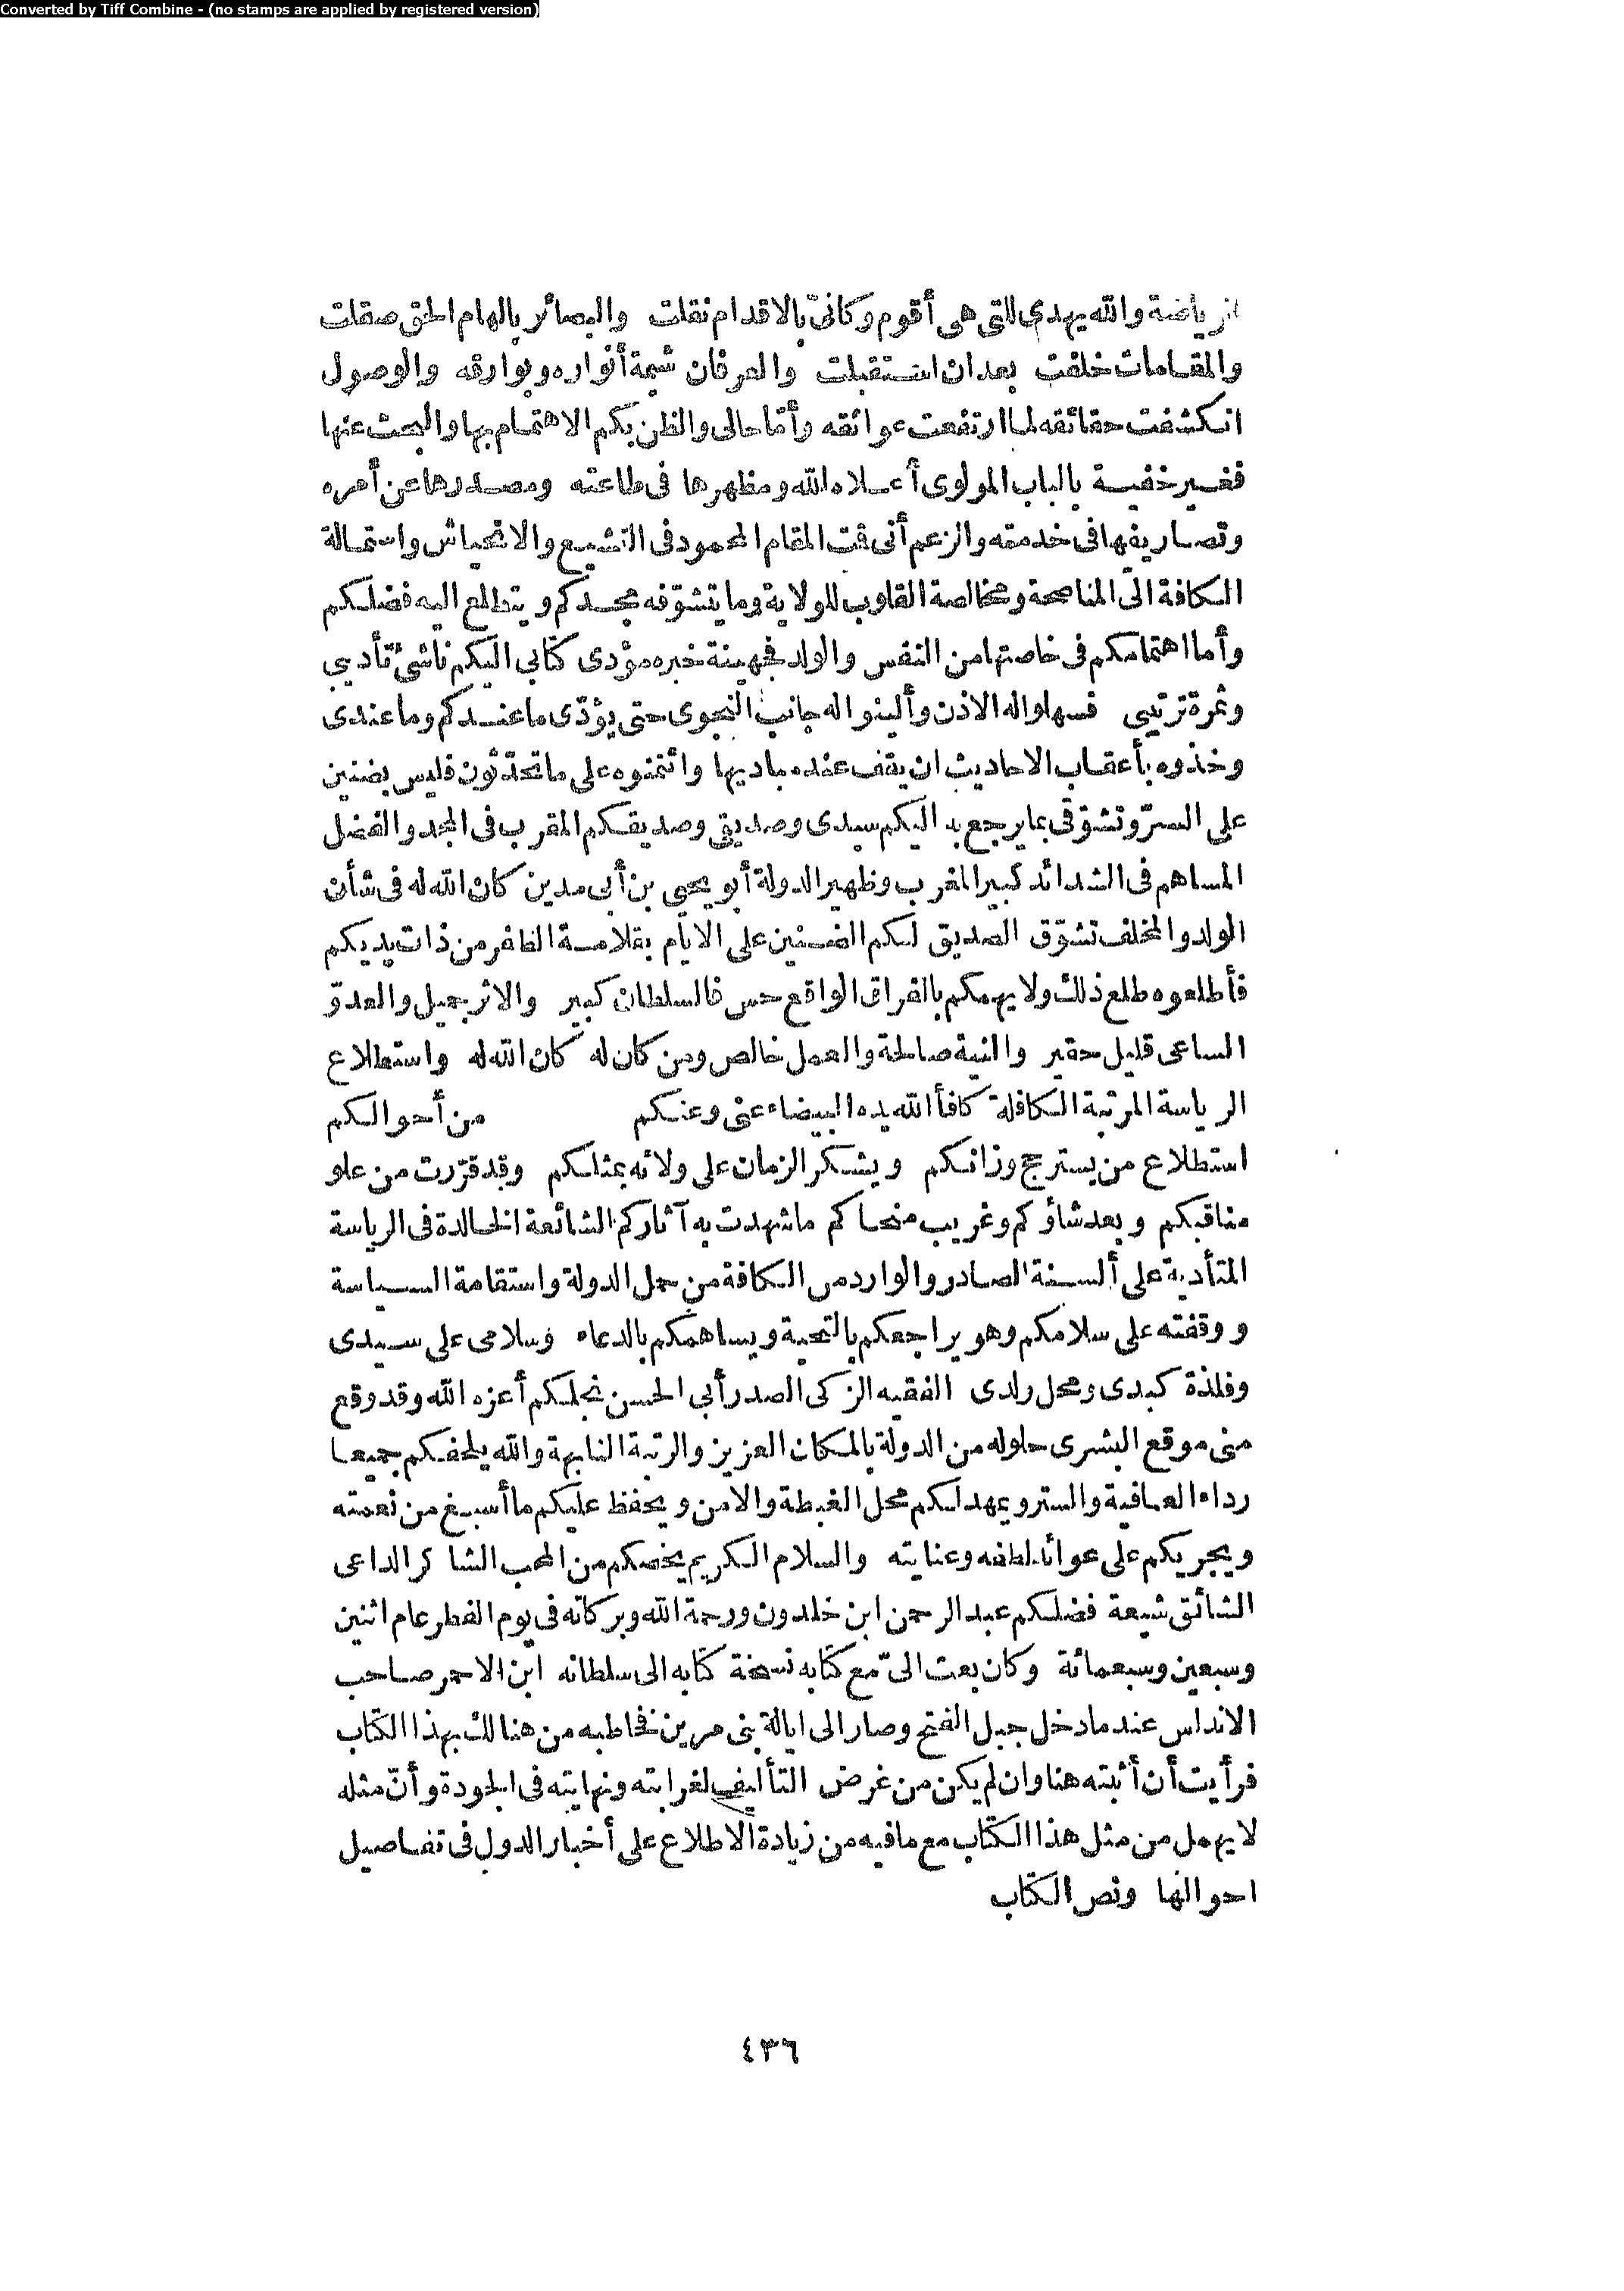 Converted by Tiff Combine - (no stamps are applied by registered version)
الرياضة والله يهدى للتى هى أقوم وكأنى بالاقدام نقلت والبصائر بالهام الحق صقلت
والمقامات خلفت بعد ان استقبلت والعرفان شيمة أنواره وبوارقه والوصول
انكشفت حقائقه لما ارتفعت عوائقه وأما حالى والظن بكم الاهتمام بها والبحث عنها
فغير خفية بالباب المولوى أعلاه الله ومظهرها فى طاعته ومصدرها عن أمره
وتصاريفها فى خدمته والزعم أنى قت المقام المحمود فى التشيع والانحياش واستمالة
الكافة الى المناصحة ومخالصة القلوب للولاية وما يتشوّفه مجدكم ويتطلع اليه فضلكم
وأما اهتمامكم فى خاصتها من النفس والولد فجهينة خبره مؤدى كتابى اليكم ناشئ تأديبى
وثمرة تربيتى فسهلوا له الاذن وألينوا له جانب النجوى حتى يؤدّى ما عندكم وما عندى
وخذوه بأعقاب الاحاديث ان يقف عند مباديها وائتمنوه على ما تحدّثون فليس بضنين
على السرّ وتشوّقى بما يرجع به اليكم سيدى وصديقى وصديقكم المقرب فى المجد والفضل
المساهم فى الشدائد كبير المغرب وظهير الدولة أبو يحيى بن أبى مدين كان الله له فى شأن
الولد والمخلف تشوّق الصديق لكم الضنين على الايام بقلامة الظافر من ذات يديكم
فأطلعوه طلع ذلك ولا يهمكم بالفراق الواقع حس فالسلطان كبير والاثر جميل والعدوّ
الساعى قليل حقير والنية صالحة والعمل خالص ومن كان له كان الله له واستطلاع
الرياسة المرتبة الكافلة كافأ الله يده البيضاء عنى وعنكم من أحوالكم
استطلاع من يسترجح وزانكم ويشكر الزمان على ولائه بمثلكم وقد قرّرت من علو
مناقبكم وبعد شأوكم وغريب منحاكم ما شهدت به آثاركم الشائعة الخالدة فى الرياسة
المتأدية على ألسنة الصادر والوارد من الكافة من حمل الدولة واستقامة السياسة
ووقفته على سلامكم وهو يراجعكم بالتحية ويساهمكم بالدعاء وسلامى على سيدى
وفلذة كبدى ومحل ولدى الفقيه الزكى الصدر أبى الحسن نجلكم أعزه الله وقد وقع
منى موقع البشرى حلوله من الدولة بالمكان العزيز والرتبة النابهة والله يلحفكم جميعا
رداء العافية والستر ويمهد لكم محل الغبطة والامن ويحفظ عليكم ما أسبغ من نعمته
ويجريكم على عوائد لطفه وعنايته والسلام الكريم يخصكم من المحب الشاكر الداعى
الشائق شيعة فضلكم عبد الرحمن ابن خلدون ورحمة الله وبركاته فى يوم الفطر عام اثنين
وسبعين وسبعمائة وكان بعت الىّ مع كتابه نسخة كتابه الى سلطانه ابن الاحمر صاحب
الاندلس عندما دخل جبل الفتح وصار الى ايالة بنى مرين فخاطبه من هنالك بهذا الكتاب
فرأيت أن أثبته هنا وان لم يكن من غرض التأليف لغرابته ونهايته فى الجودة وأنّ مثله
لا يهمل من مثل هذا الكتاب مع ما فيه من زيادة الاطلاع على أخبار الدول فى تفاصيل
احوالها ونص الكتاب
٤٣٦